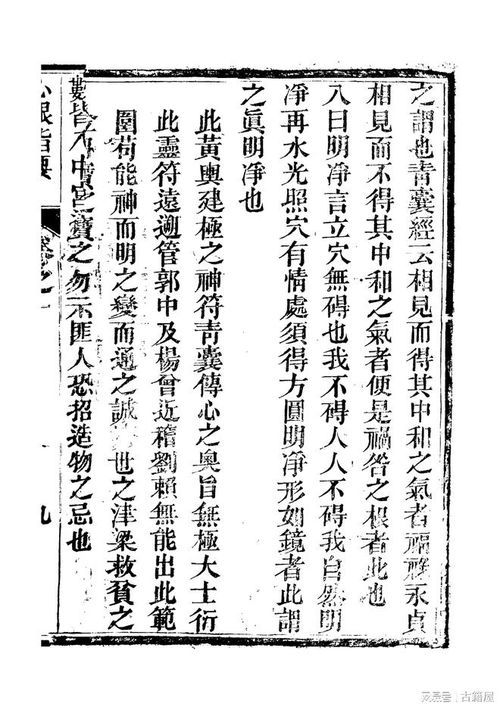 之謂也青囊經云相見而得其中和之氣者福祿永貞
相見而不得其中和之氣者便是禍咎之根者此也
八曰明凈言立穴無碍也我不碍人人不碍我自然明
凈再水光照穴有情處須得方圓明凈形如鏡者此謂
之眞明凈也
此黃輿建極之神符青囊傳心之奧旨無極大士衍
此靈符遠邇管郭中及楊曾近稽劉賴無能出此範
圍苟能神而明之變而通之誠世之津梁救貧之
數皆不中宮寶之勿示匪人恐招造物之忌也
心眼指要
卷之一
九
古籍屋